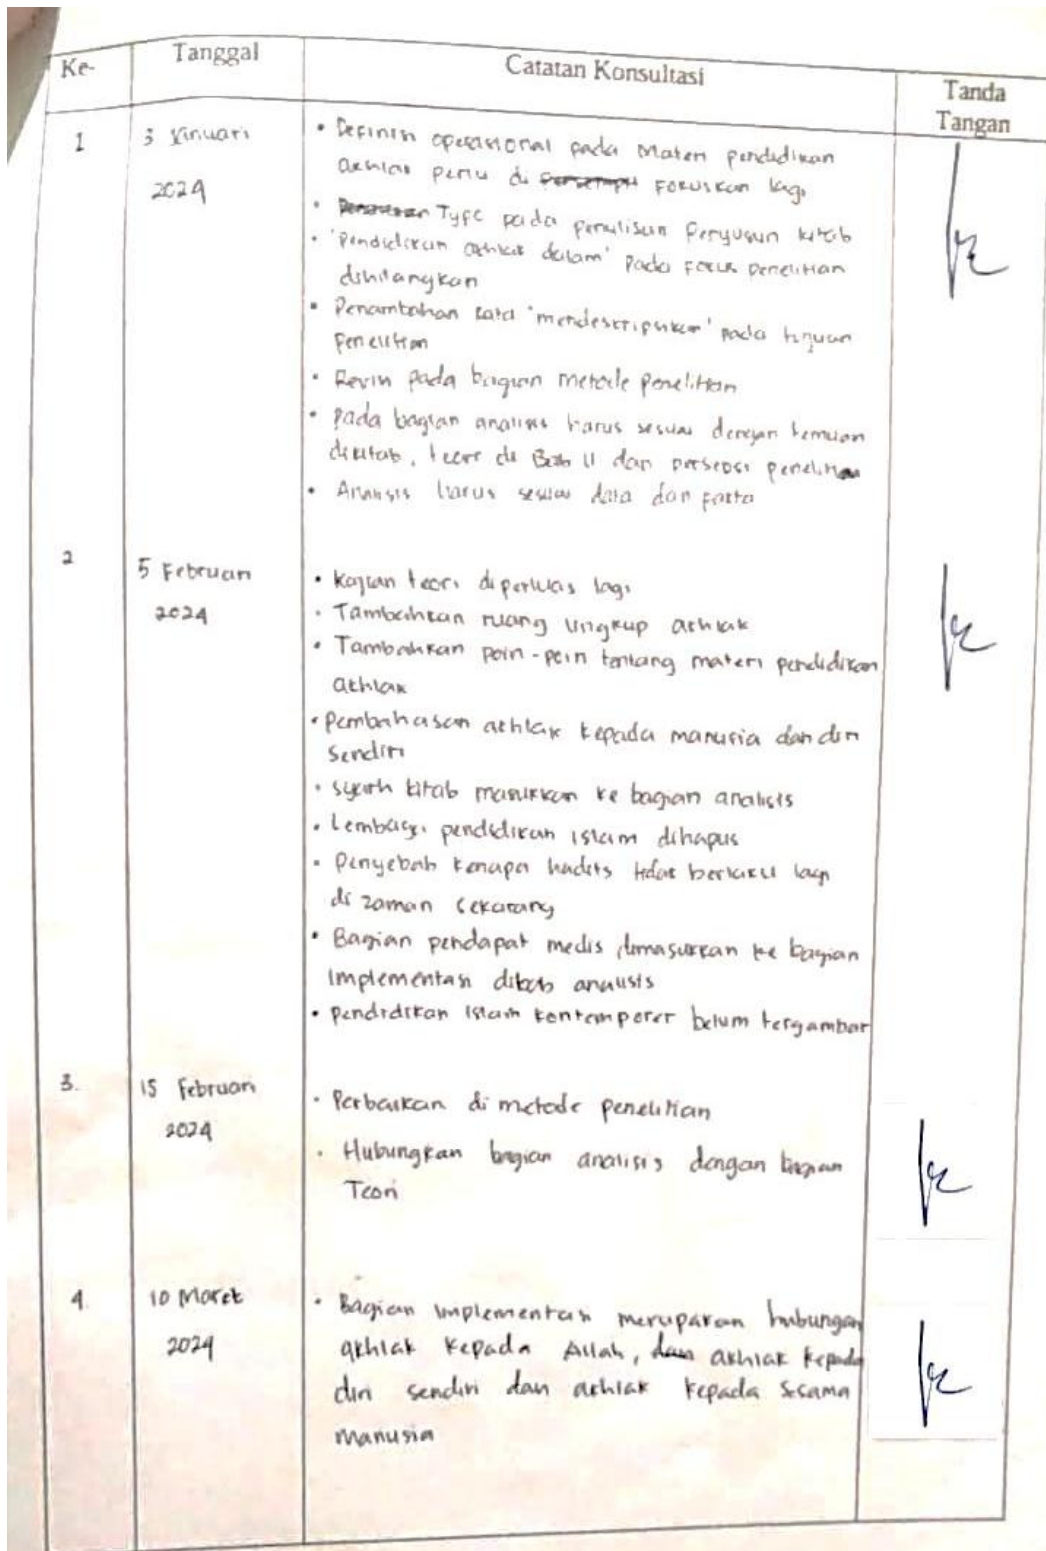 Ke-
Tanggal
Catatan Konsultasi
Tanda
Tangan
1
3 Januari
2024
• Definisi operasional pada materi pendidikan
akhlak perlu di fokuskan lagi
• Type pada penulisan penyusun kitab
• 'Pendidikan akhlak dalam' pada fokus penelitian
dihilangkan
• Penambahan kata 'mendeskripsikan' pada tujuan
penelitian
• Revisi pada bagian metode penelitian
• pada bagian analisis harus sesuai dengan temuan
dikitab, teori di Bab II dan persepsi penelitian
• Analisis harus sesuai data dan fakta
2
5 Februari
2024
• kajian teori diperluas lagi
• Tambahkan ruang lingkup akhlak
• Tambahkan poin-poin tentang materi pendidikan
akhlak
• pembahasan akhlak kepada manusia dan diri
sendiri
• syarh kitab masukkan ke bagian analisis
• Lembaga pendidikan islam dihapus
• Penyebab kenapa hadits tidak berlaku lagi
di zaman sekarang
• Bagian pendapat medis dimasukkan ke bagian
implementasi dibab analisis
• pendidikan islam kontemporer belum tergambar
3.
15 Februari
2024
• Perbaikan di metode penelitian
• Hubungkan bagian analisis dengan bagian
Teori
4.
10 Maret
2024
• Bagian implementasi merupakan hubungan
akhlak kepada Allah, dan akhlak kepada
diri sendiri dan akhlak kepada sesama
manusia